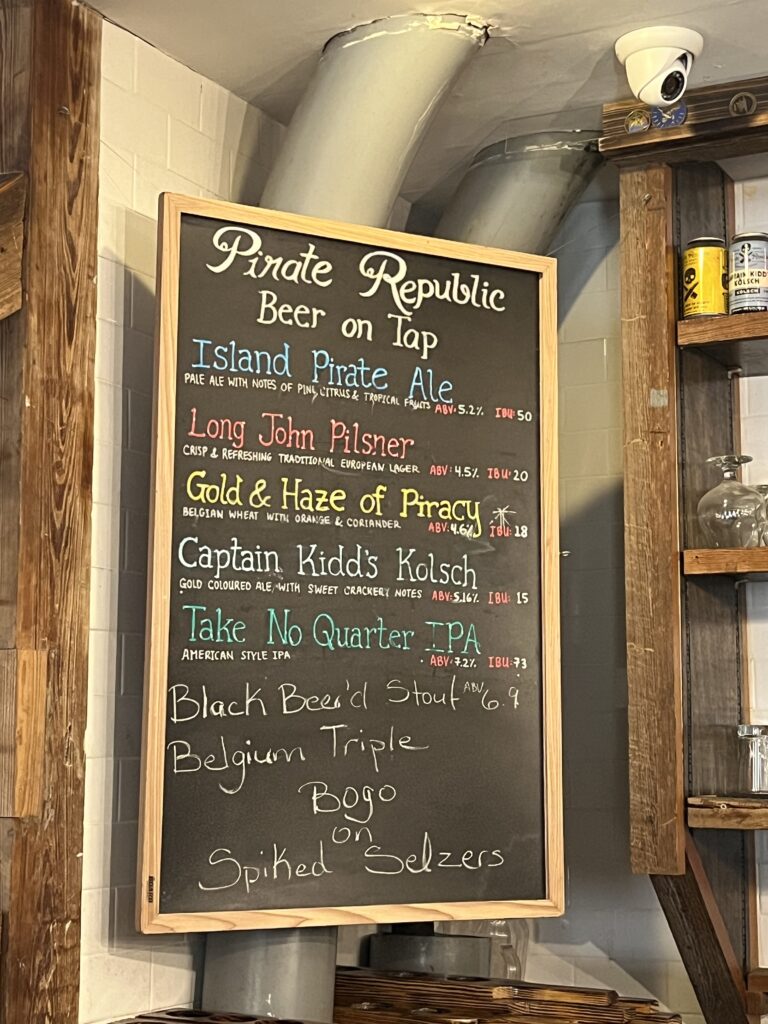 Pirate Republic
Beer on Tap
Island Pirate Ale
PALE ALE WITH NOTES OF PINE, CITRUS & TROPICAL FRUITS ABV: 5.2% IBU: 50
Long John Pilsner
CRISP & REFRESHING TRADITIONAL EUROPEAN LAGER ABV: 4.5% IBU: 20
Gold & Haze of Piracy
BELGIAN WHEAT WITH ORANGE & CORIANDER ABV: 4.6% IBU: 18
Captain Kidd's Kolsch
GOLD COLOURED ALE, WITH SWEET CRACKERY NOTES ABV: 5.16% IBU: 15
Take No Quarter IPA
AMERICAN STYLE IPA ABV: 7.2% IBU: 73
Black Beer'd Stout ABV 6.9
Belgium Triple
Bogo
on
Spiked Selzers
CAPTAIN KIDD'S
KÖLSCH